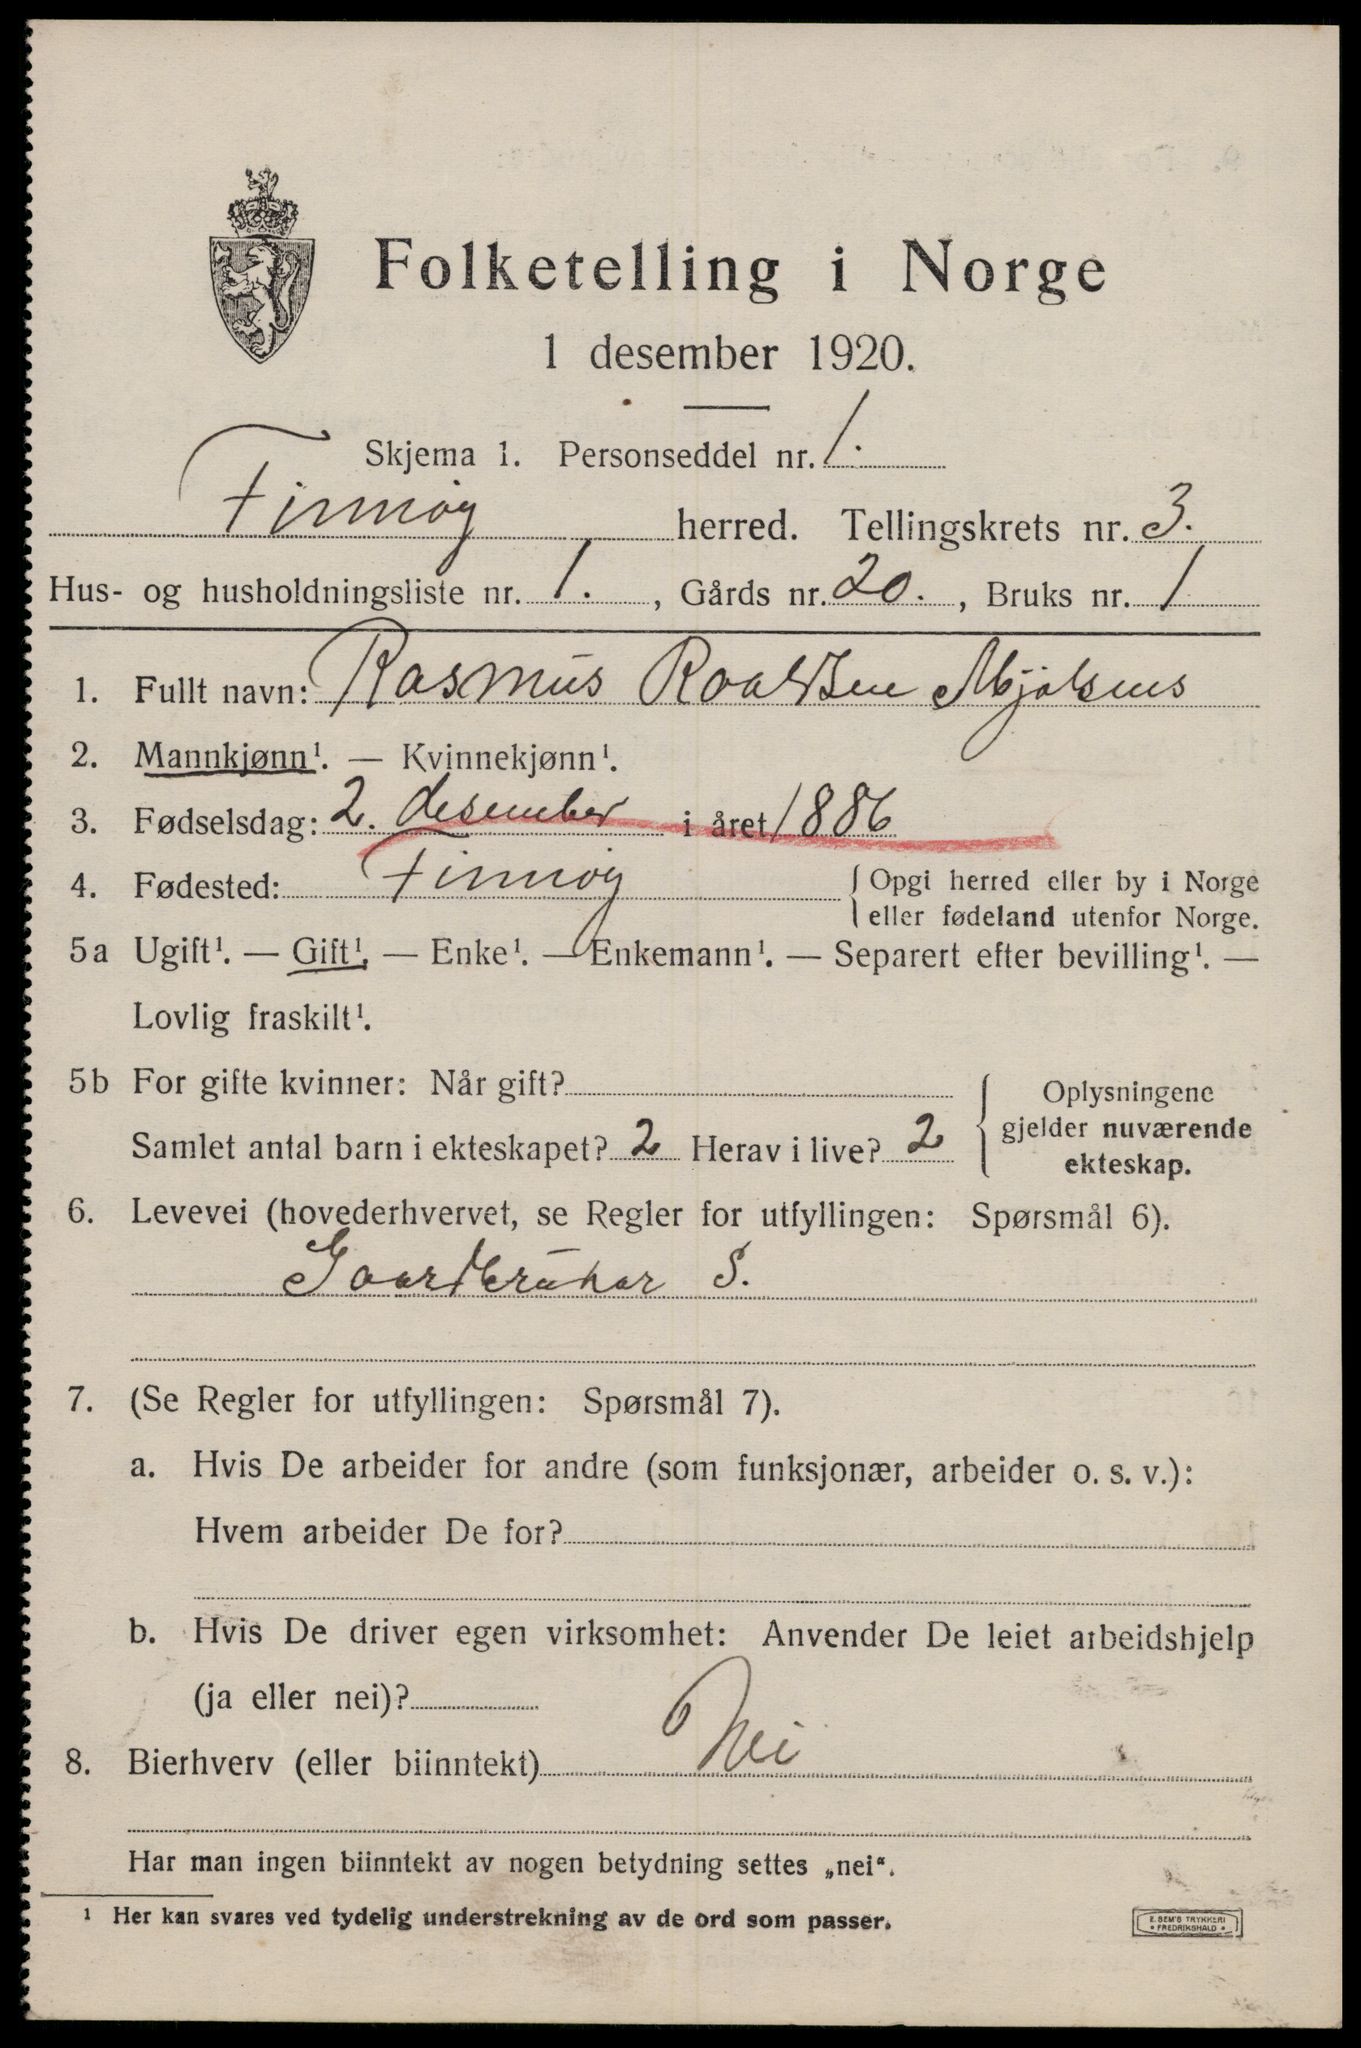 Folketelling i Norge
1 desember 1920.
Skjema 1. Personseddel nr. 1.
Finnøy herred. Tellingskrets nr. 3.
Hus- og husholdningsliste nr. 1., Gårds nr. 20., Bruks nr. 1
1. Fullt navn: Rasmus Roaldsen Mjølsnes
2. Mannkjønn¹. — Kvinnekjønn¹.
3. Fødselsdag: 2. desember i året 1886
4. Fødested: Finnøy { Opgi herred eller by i Norge
eller fødeland utenfor Norge.
5a Ugift¹. — Gift¹. — Enke¹. — Enkemann¹. — Separert efter bevilling¹. —
Lovlig fraskilt¹.
5b For gifte kvinner: Når gift?
Samlet antal barn i ekteskapet? 2 Herav i live? 2
{ Oplysningene
gjelder nuværende
ekteskap.
6. Levevei (hovederhvervet, se Regler for utfyllingen: Spørsmål 6).
Gaardbrukar S.
7. (Se Regler for utfyllingen: Spørsmål 7).
a. Hvis De arbeider for andre (som funksjonær, arbeider o. s. v.):
Hvem arbeider De for?
b. Hvis De driver egen virksomhet: Anvender De leiet arbeidshjelp
(ja eller nei)?
8. Bierhverv (eller biinntekt) Nei
Har man ingen biinntekt av nogen betydning settes „nei“.
¹ Her kan svares ved tydelig understrekning av de ord som passer.
E. SEM'S TRYKKERI
• FREDRIKSHALD •